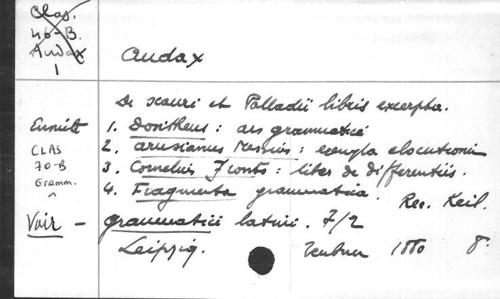 Clas.
46-B.
Audax
1
Audax
De scauri et Palladii libris excerpta.
1. Dositheus : ars grammatica
2. Arusianus Messius : exempla elocutionum
3. Cornelius Fronto : liber de differentiis.
4. Fragmenta grammatica.
Rec. Keil.
CLAS
70-B
Gramm.
Voir - grammatici latini. 7/2
Leipzig. Teubner 1880 8°